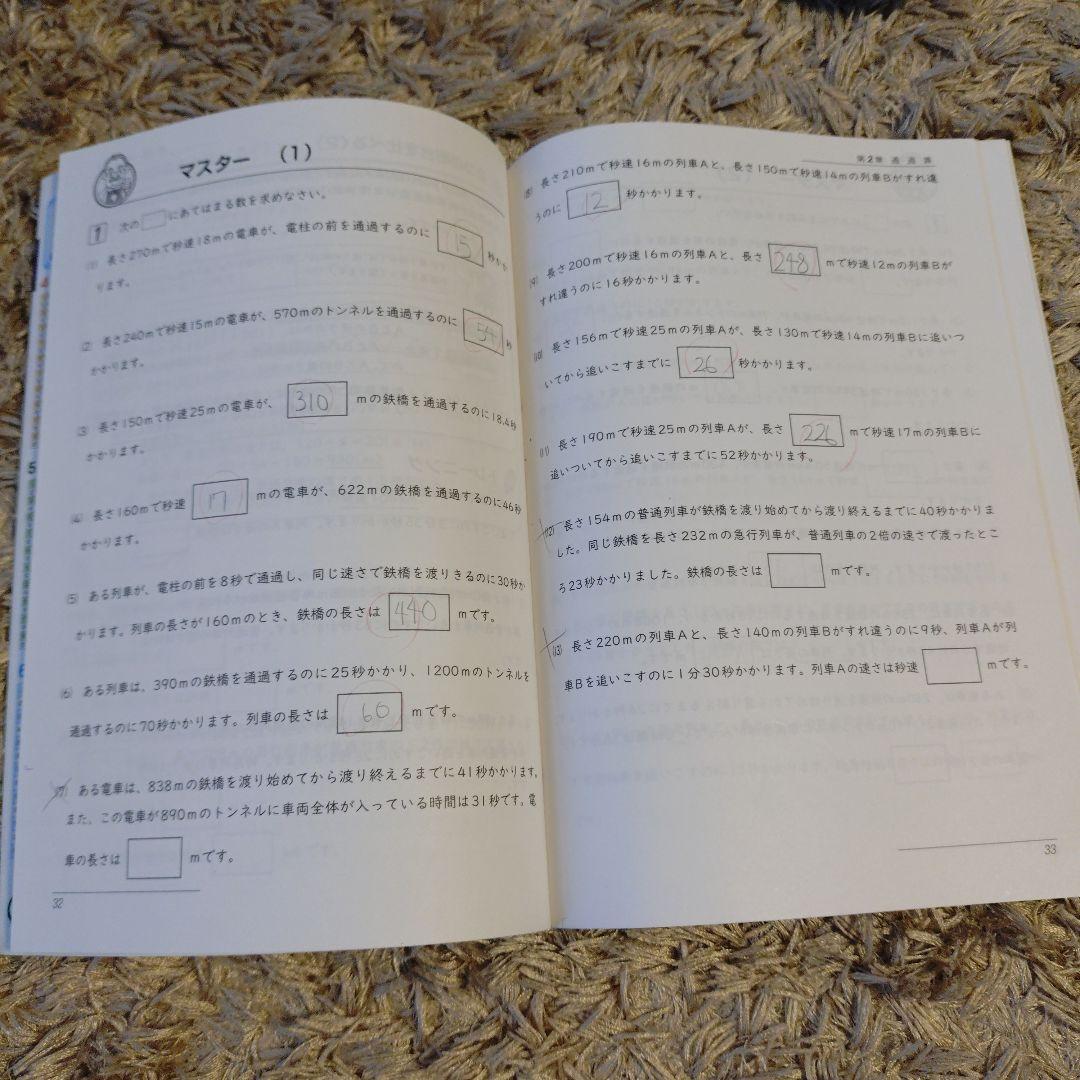 マスター (1)
1 次の□にあてはまる数を求めなさい。
(1) 長さ270mで秒速18mの電車が、電柱の前を通過するのに 15 秒かか
ります。
(2 長さ240mで秒速15mの電車が、570mのトンネルを通過するのに 54 秒
かかります。
(3 長さ150mで秒速25mの電車が、 310 mの鉄橋を通過するのに18.4秒
かかります。
(4) 長さ160mで秒速 17 mの電車が、622mの鉄橋を通過するのに46秒
かかります。
(5) ある列車が、電柱の前を8秒で通過し、同じ速さで鉄橋を渡りきるのに30秒か
かります。列車の長さが160mのとき、鉄橋の長さは 440 mです。
(6) ある列車は、390mの鉄橋を通過するのに25秒かかり、1200mのトンネルを
通過するのに70秒かかります。列車の長さは 60 mです。
(7) ある電車は、838mの鉄橋を渡り始めてから渡り終えるまでに41秒かかります。
また、この電車が890mのトンネルに車両全体が入っている時間は31秒です。電
車の長さは □ mです。
32
第2章 通過算
(8) 長さ210mで秒速16mの列車Aと、長さ150mで秒速14mの列車Bがすれ違
うのに 12 秒かかります。
(9) 長さ200mで秒速16mの列車Aと、長さ 248 mで秒速12mの列車Bが
すれ違うのに16秒かかります。
(10) 長さ156mで秒速25mの列車Aが、長さ130mで秒速14mの列車Bに追いつ
いてから追いこすまでに 26 秒かかります。
(11) 長さ190mで秒速25mの列車Aが、長さ 226 mで秒速17mの列車Bに
追いついてから追いこすまでに52秒かかります。
(12) 長さ154mの普通列車が鉄橋を渡り始めてから渡り終えるまでに40秒かかりま
した。同じ鉄橋を長さ232mの急行列車が、普通列車の2倍の速さで渡ったとこ
ろ23秒かかりました。鉄橋の長さは □ mです。
(13) 長さ220mの列車Aと、長さ140mの列車Bがすれ違うのに9秒、列車Aが列
車Bを追いこすのに1分30秒かかります。列車Aの速さは秒速 □ mです。
33